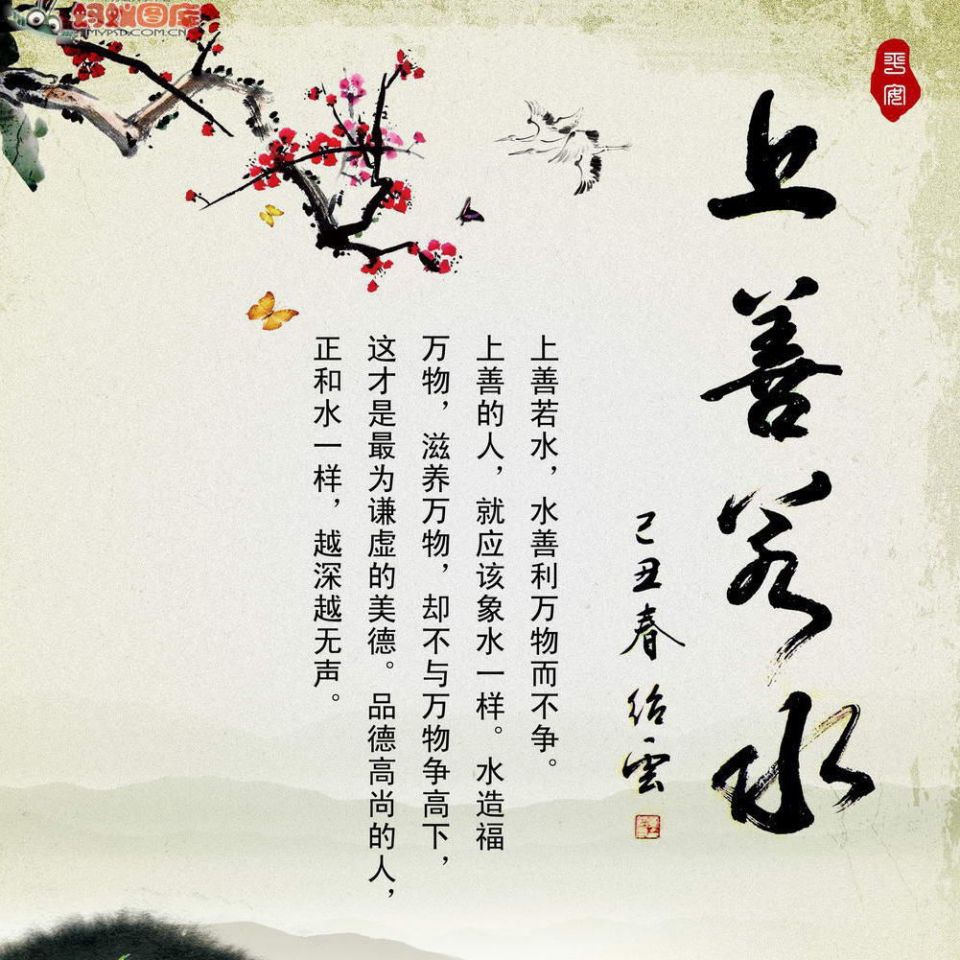 蚂蚁图库
MYPSD.COM.CN
平安
上善若水
己丑春 绍雲
上善若水，水善利万物而不争。
上善的人，就应该象水一样。水造福
万物，滋养万物，却不与万物争高下，
这才是最为谦虚的美德。品德高尚的人，
正和水一样，越深越无声。